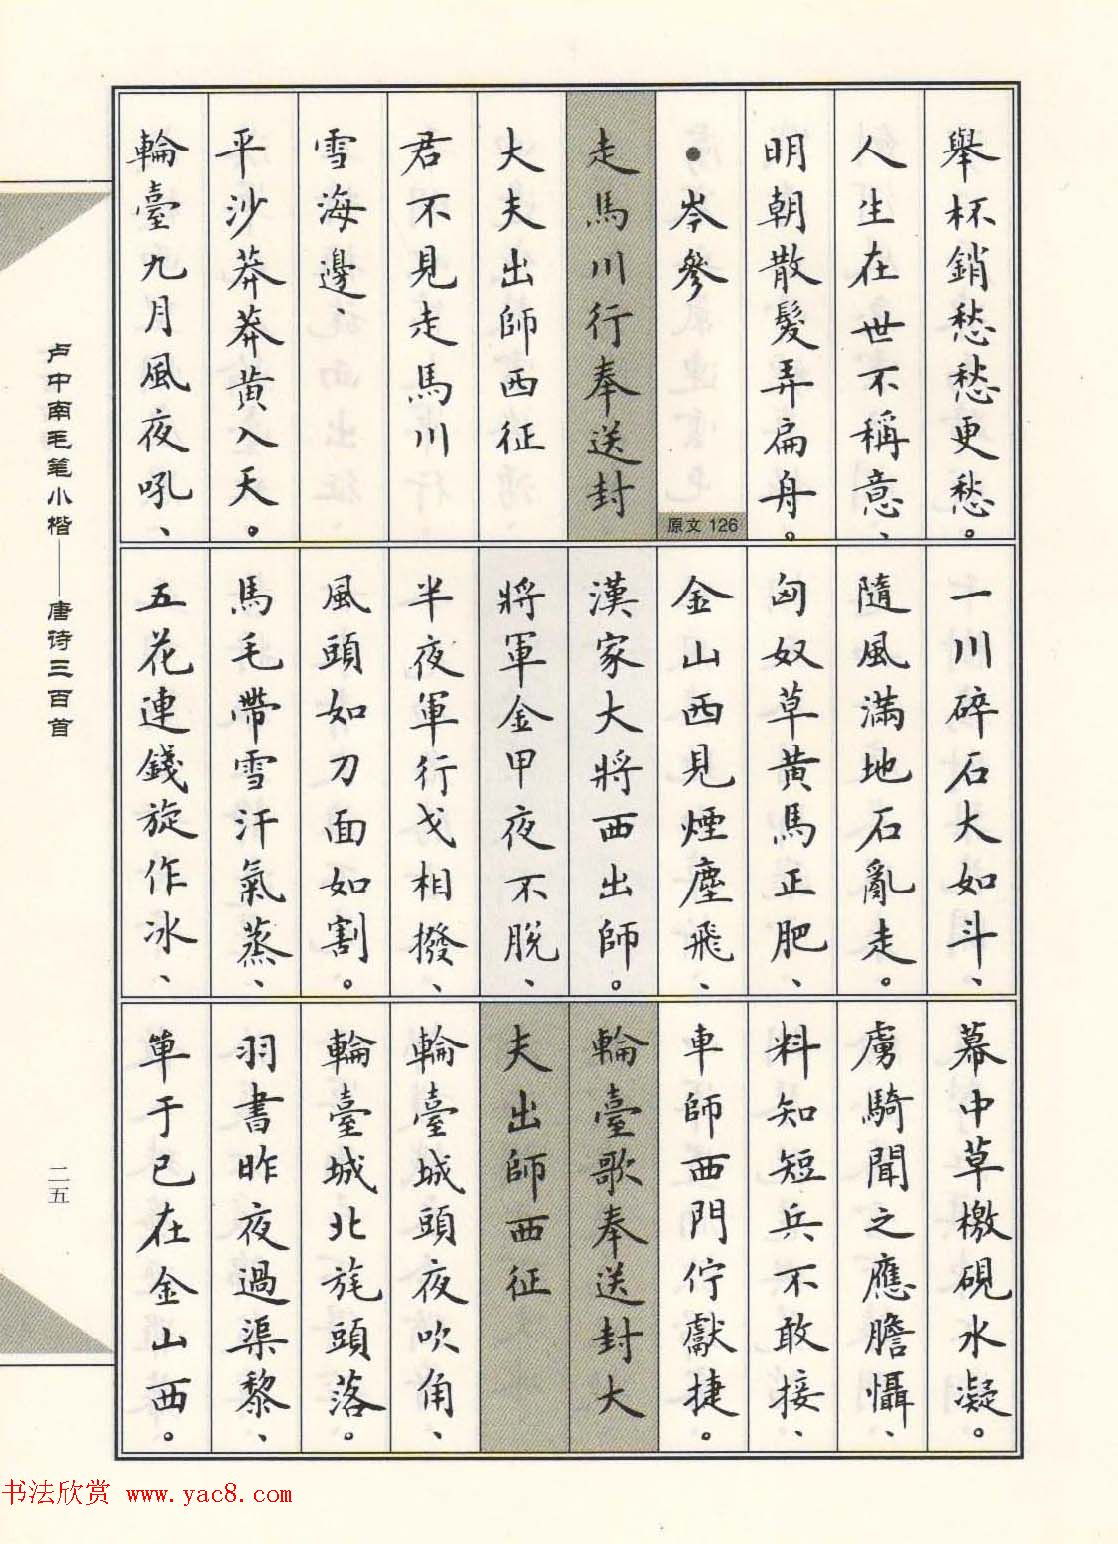 舉杯銷愁愁更愁。
人生在世不稱意、
明朝散髮弄扁舟。
● 岑參
原文 126
走馬川行奉送封
大夫出師西征
君不見走馬川
雪海邊、
平沙莽莽黄入天。
輪臺九月風夜吼、
一川碎石大如斗、
隨風滿地石亂走。
匈奴草黄馬正肥、
金山西見煙塵飛、
漢家大將西出師。
將軍金甲夜不脱、
半夜軍行戈相撥、
風頭如刀面如割。
馬毛帶雪汗氣蒸、
五花連錢旋作冰、
幕中草檄硯水凝。
虜騎聞之應膽懾、
料知短兵不敢接、
車師西門佇獻捷。
輪臺歌奉送封大
夫出師西征
輪臺城頭夜吹角、
輪臺城北旄頭落。
羽書昨夜過渠黎、
單于已在金山西。
卢中南毛笔小楷——唐诗三百首
二五
书法欣赏 www.yac8.com